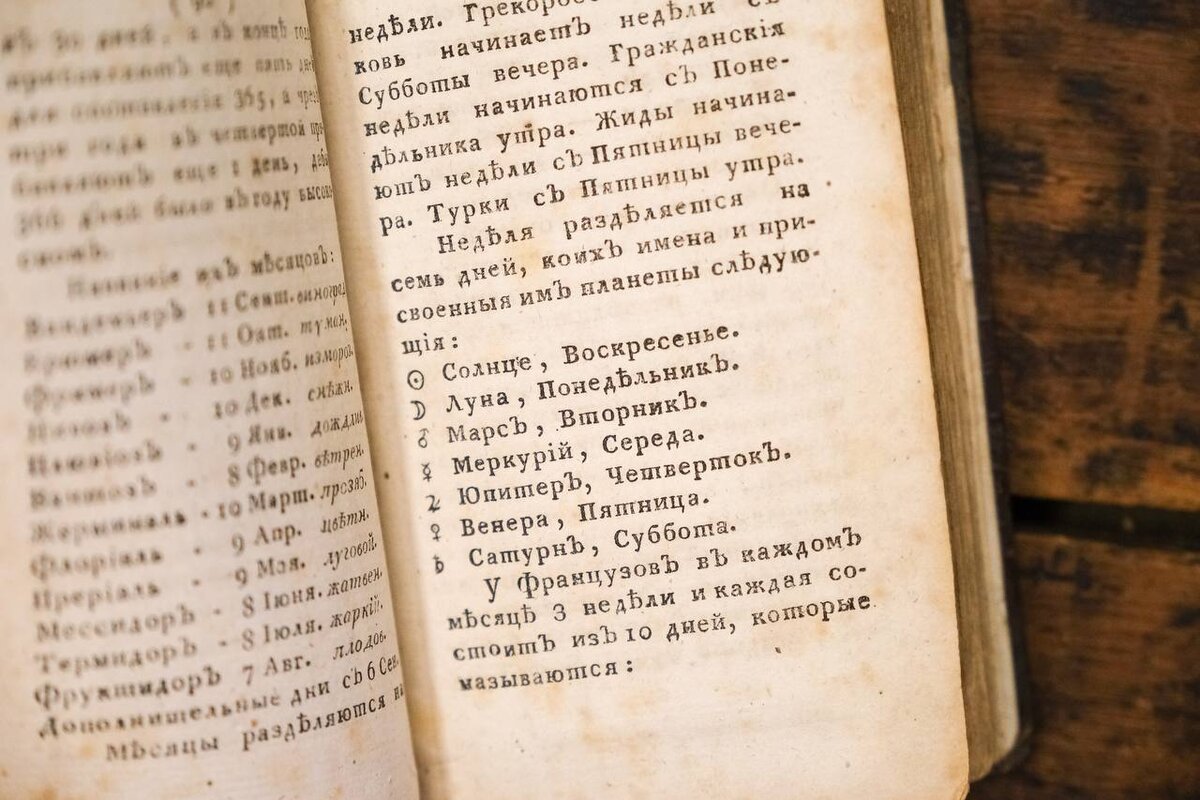 30 дней, а въ конце
еще пять
для составленія 365, а чрез
три года въ четвертой при-
бавляютъ еще 1 день, дабы
366 дней было въ году высоко-
сномъ.
Названіе ихъ мѣсяцовъ:
Вандемьеръ 22 Сент. виноград.
Брюмеръ - 22 Окт. туман.
Фримеръ - 20 Нояб. изморозь
Нивозъ - 20 Дек. снѣжн.
9 Янв. дождли.
8 Февр. вѣтрен.
Жерминаль - 20 Март. прозяб.
Флоріаль - 9 Апр. цвѣтн.
Преріаль - 9 Мая. луговой.
Мессидоръ - 8 Іюня. жатвен.
Термидоръ - 8 Іюля. жаркій.
Фруктидоръ 7 Авг. плодов.
Дополнительные дни съ 6 Сен.
Мѣсяцы раздѣляются на
недѣли.
ковь начинаетъ недѣли съ
Субботы вечера. Гражданскія
недѣли начинаются съ Поне-
дѣльника утра. Жиды начина-
ютъ недѣли съ Пятницы вече-
ра. Турки съ Пятницы утра.
Недѣля раздѣляется на
семь дней, коихъ имена и при-
своенныя имъ планеты слѣдую-
щія:
☉ Солнце, Воскресенье.
☽ Луна, Понедѣльникъ.
♂ Марсъ, Вторникъ.
☿ Меркурій, Середа.
♃ Юпитеръ, Четвертокъ.
♀ Венера, Пятница.
♄ Сатурнъ, Суббота.
У Французовъ въ каждомъ
мѣсяцѣ 3 недѣли и каждая со-
стоитъ изъ 10 дней, которые
называются: